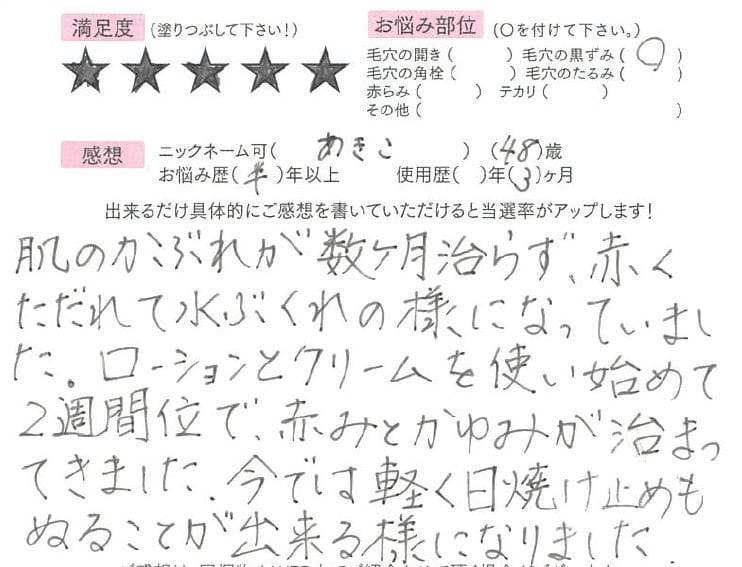 満足度 (塗りつぶして下さい!) お悩み部位 (〇を付けて下さい。)
★★★★★ 毛穴の開き( ) 毛穴の黒ずみ(〇)
毛穴の角栓( ) 毛穴のたるみ( )
赤らみ( ) テカリ( )
その他( )
感想 ニックネーム可(あきこ) (48)歳
お悩み歴(半)年以上 使用歴( )年(3)ヶ月
出来るだけ具体的にご感想を書いていただけると当選率がアップします!
肌のかぶれが数ヶ月治らず、赤く
ただれて水ぶくれの様になっていまし
た。ローションとクリームを使い始めて
2週間位で、赤みとかゆみが治まっ
てきました。今では軽く日焼け止めも
ぬることが出来る様になりました